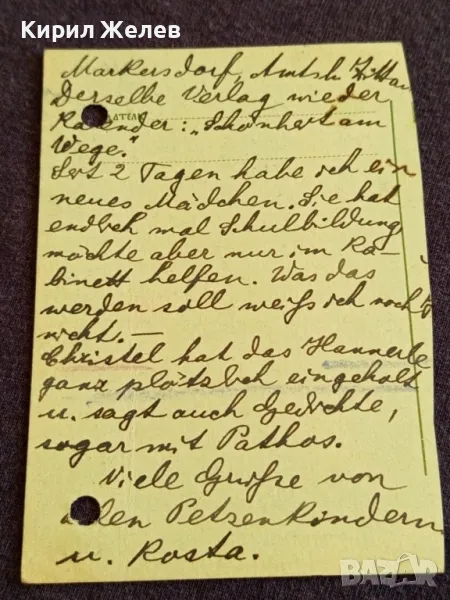 Кирил Желев
Markersdorf, Amtsh. Zittau
Derselbe Verlag wieder
Kalender: „Schönheit am
Wege."
Seit 2 Tagen habe ich ein
neues Mädchen. Sie hat
endlich mal Schulbildung
möchte aber nur im Ka-
binett helfen. Was das
werden soll weiß ich noch
nicht. —
Christel hat das Hannerle
ganz plötzlich eingeholt
u. sagt auch Gedichte,
sogar mit Pathos.
Viele Grüße von
allen Petzenkindern
u. Kosta.
BAZAR